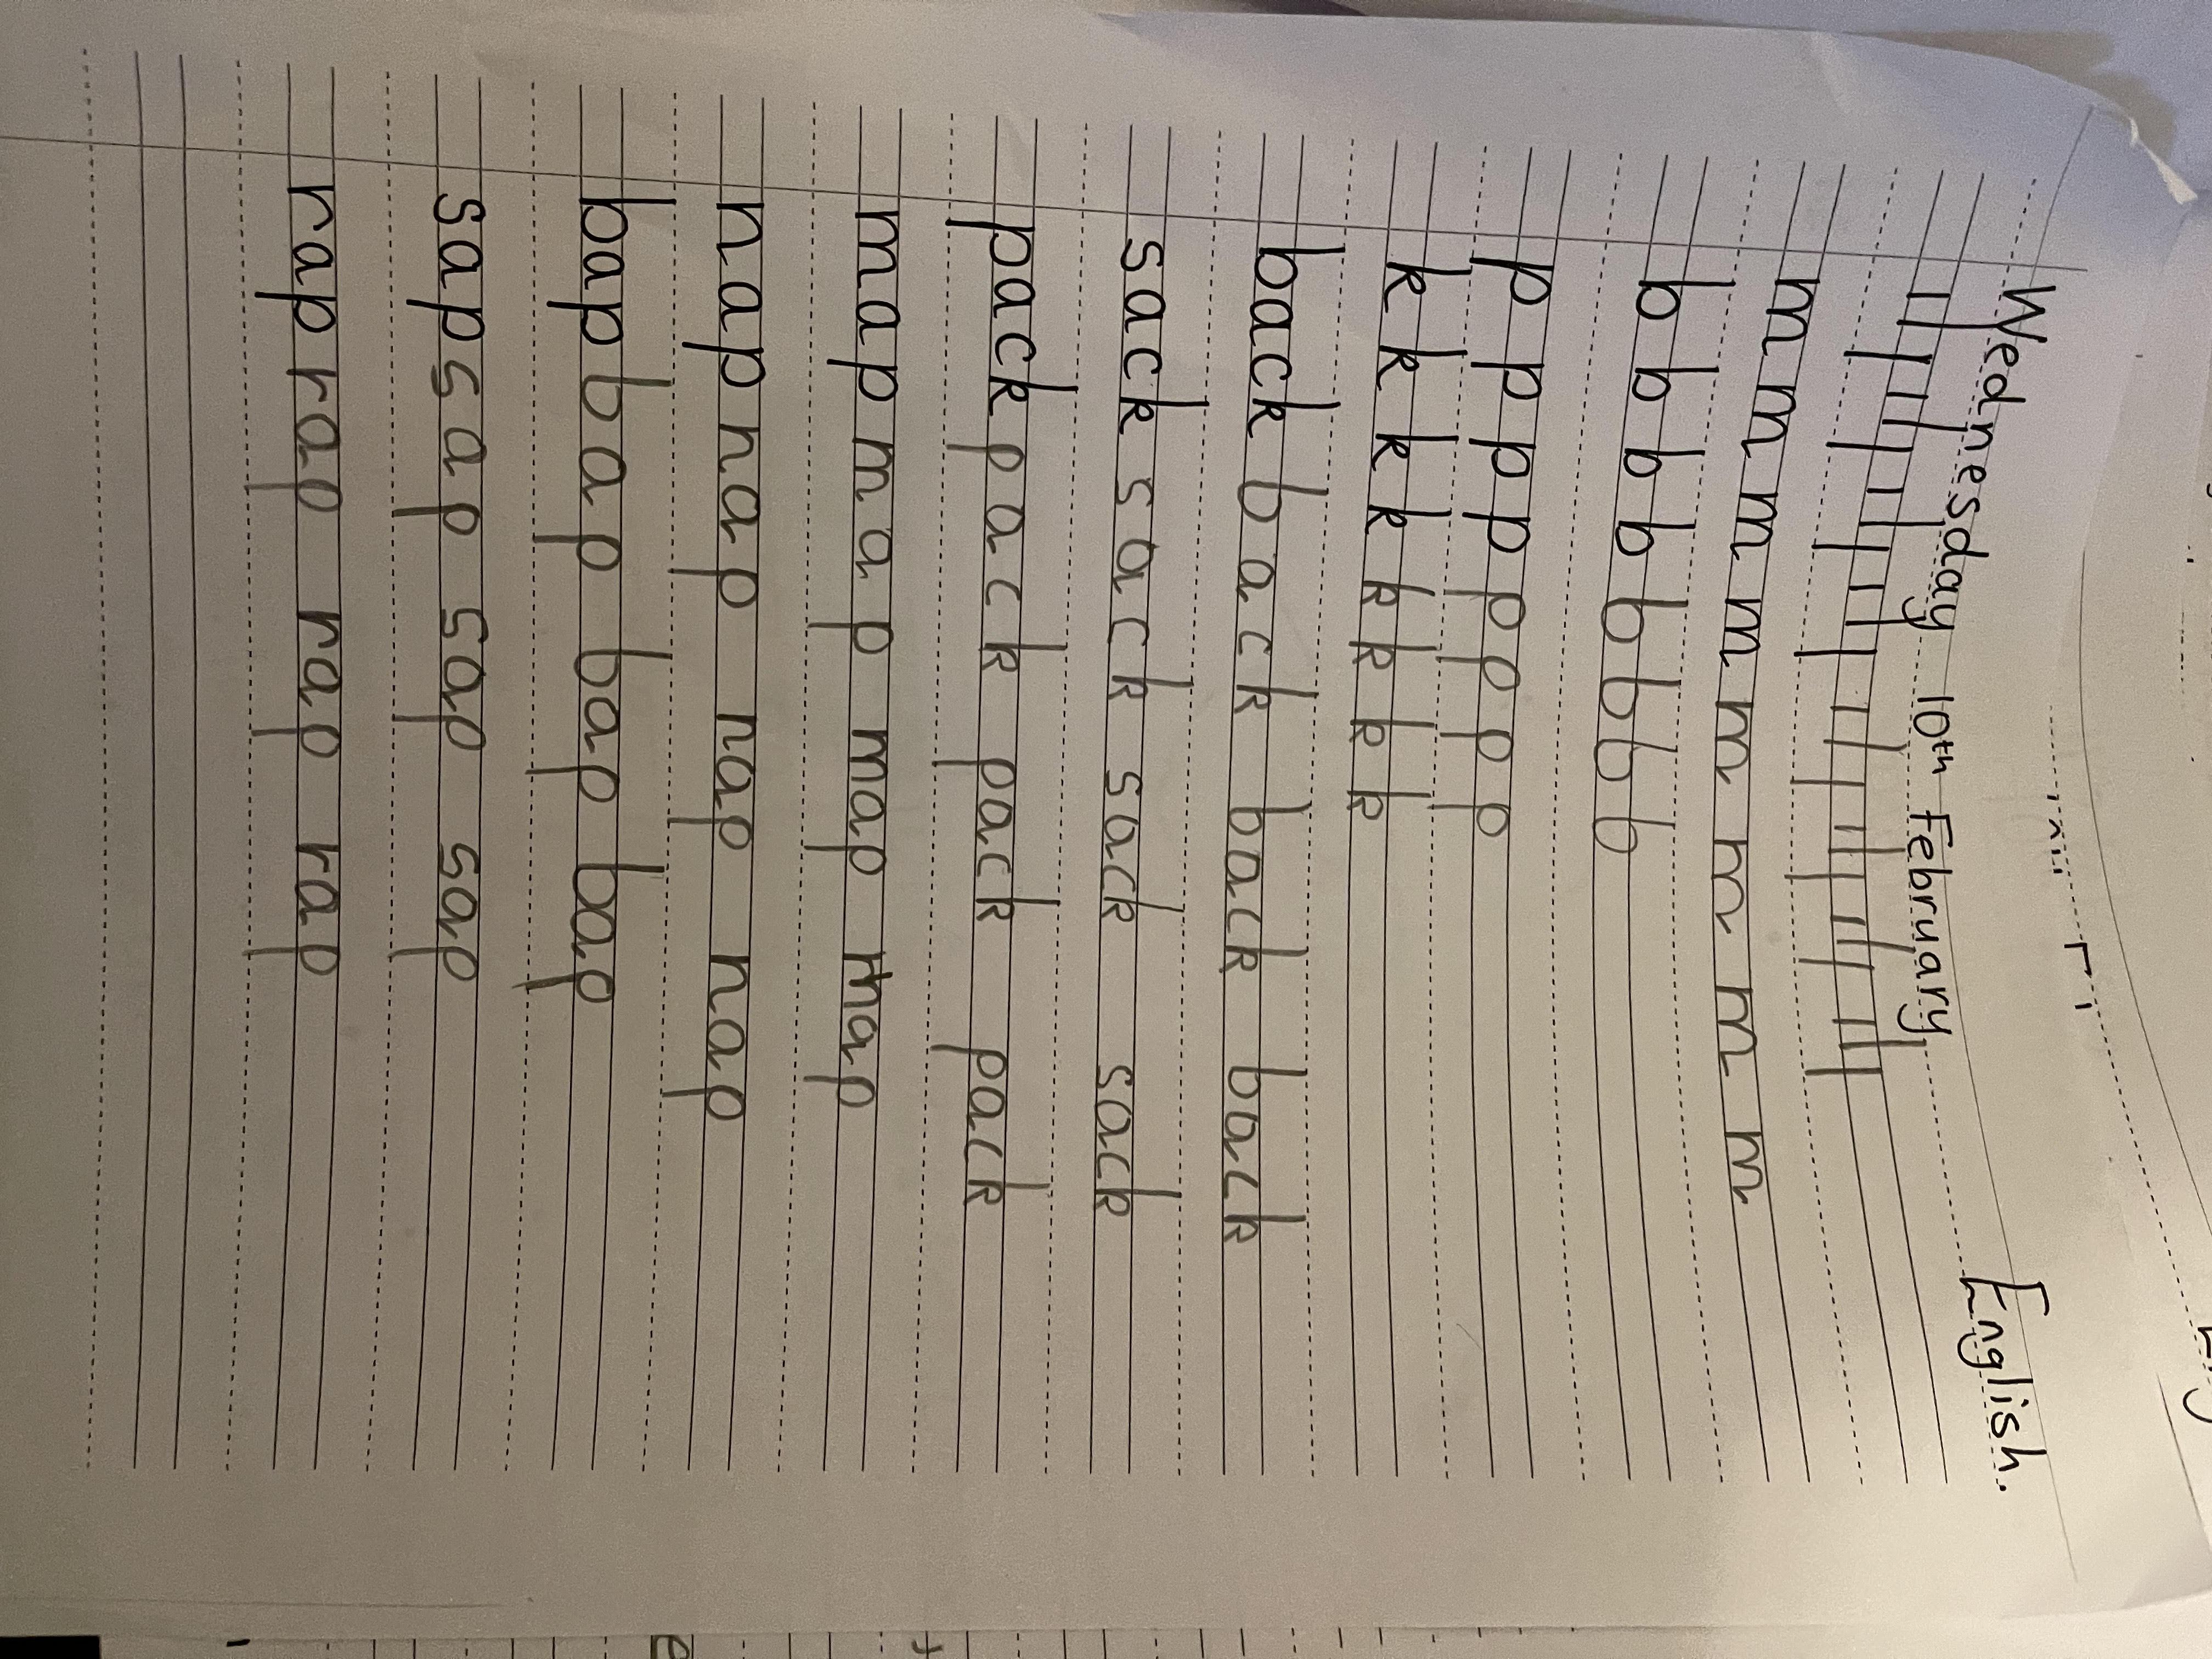 Wednesday 10th February English.
m m m m m m m m
b b b b b b b b
p p p p p p p p
k k k k k k k k
back back back back
sack sack sack sack
pack pack pack pack
map map map map
nap nap nap nap
bap bap bap bap
sap sap sap sap
rap rap rap rap